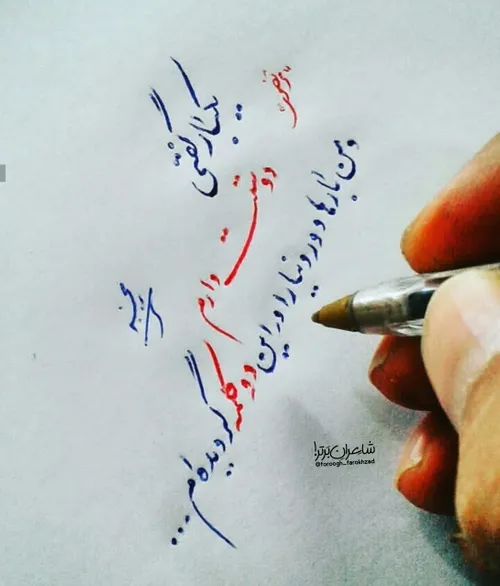 یکبار گفتی
دوستت دارم
و من بارها دور دنیا را در این دو کلمه گردیده ام...
شاعران برتر!
@foroogh_farokhzad